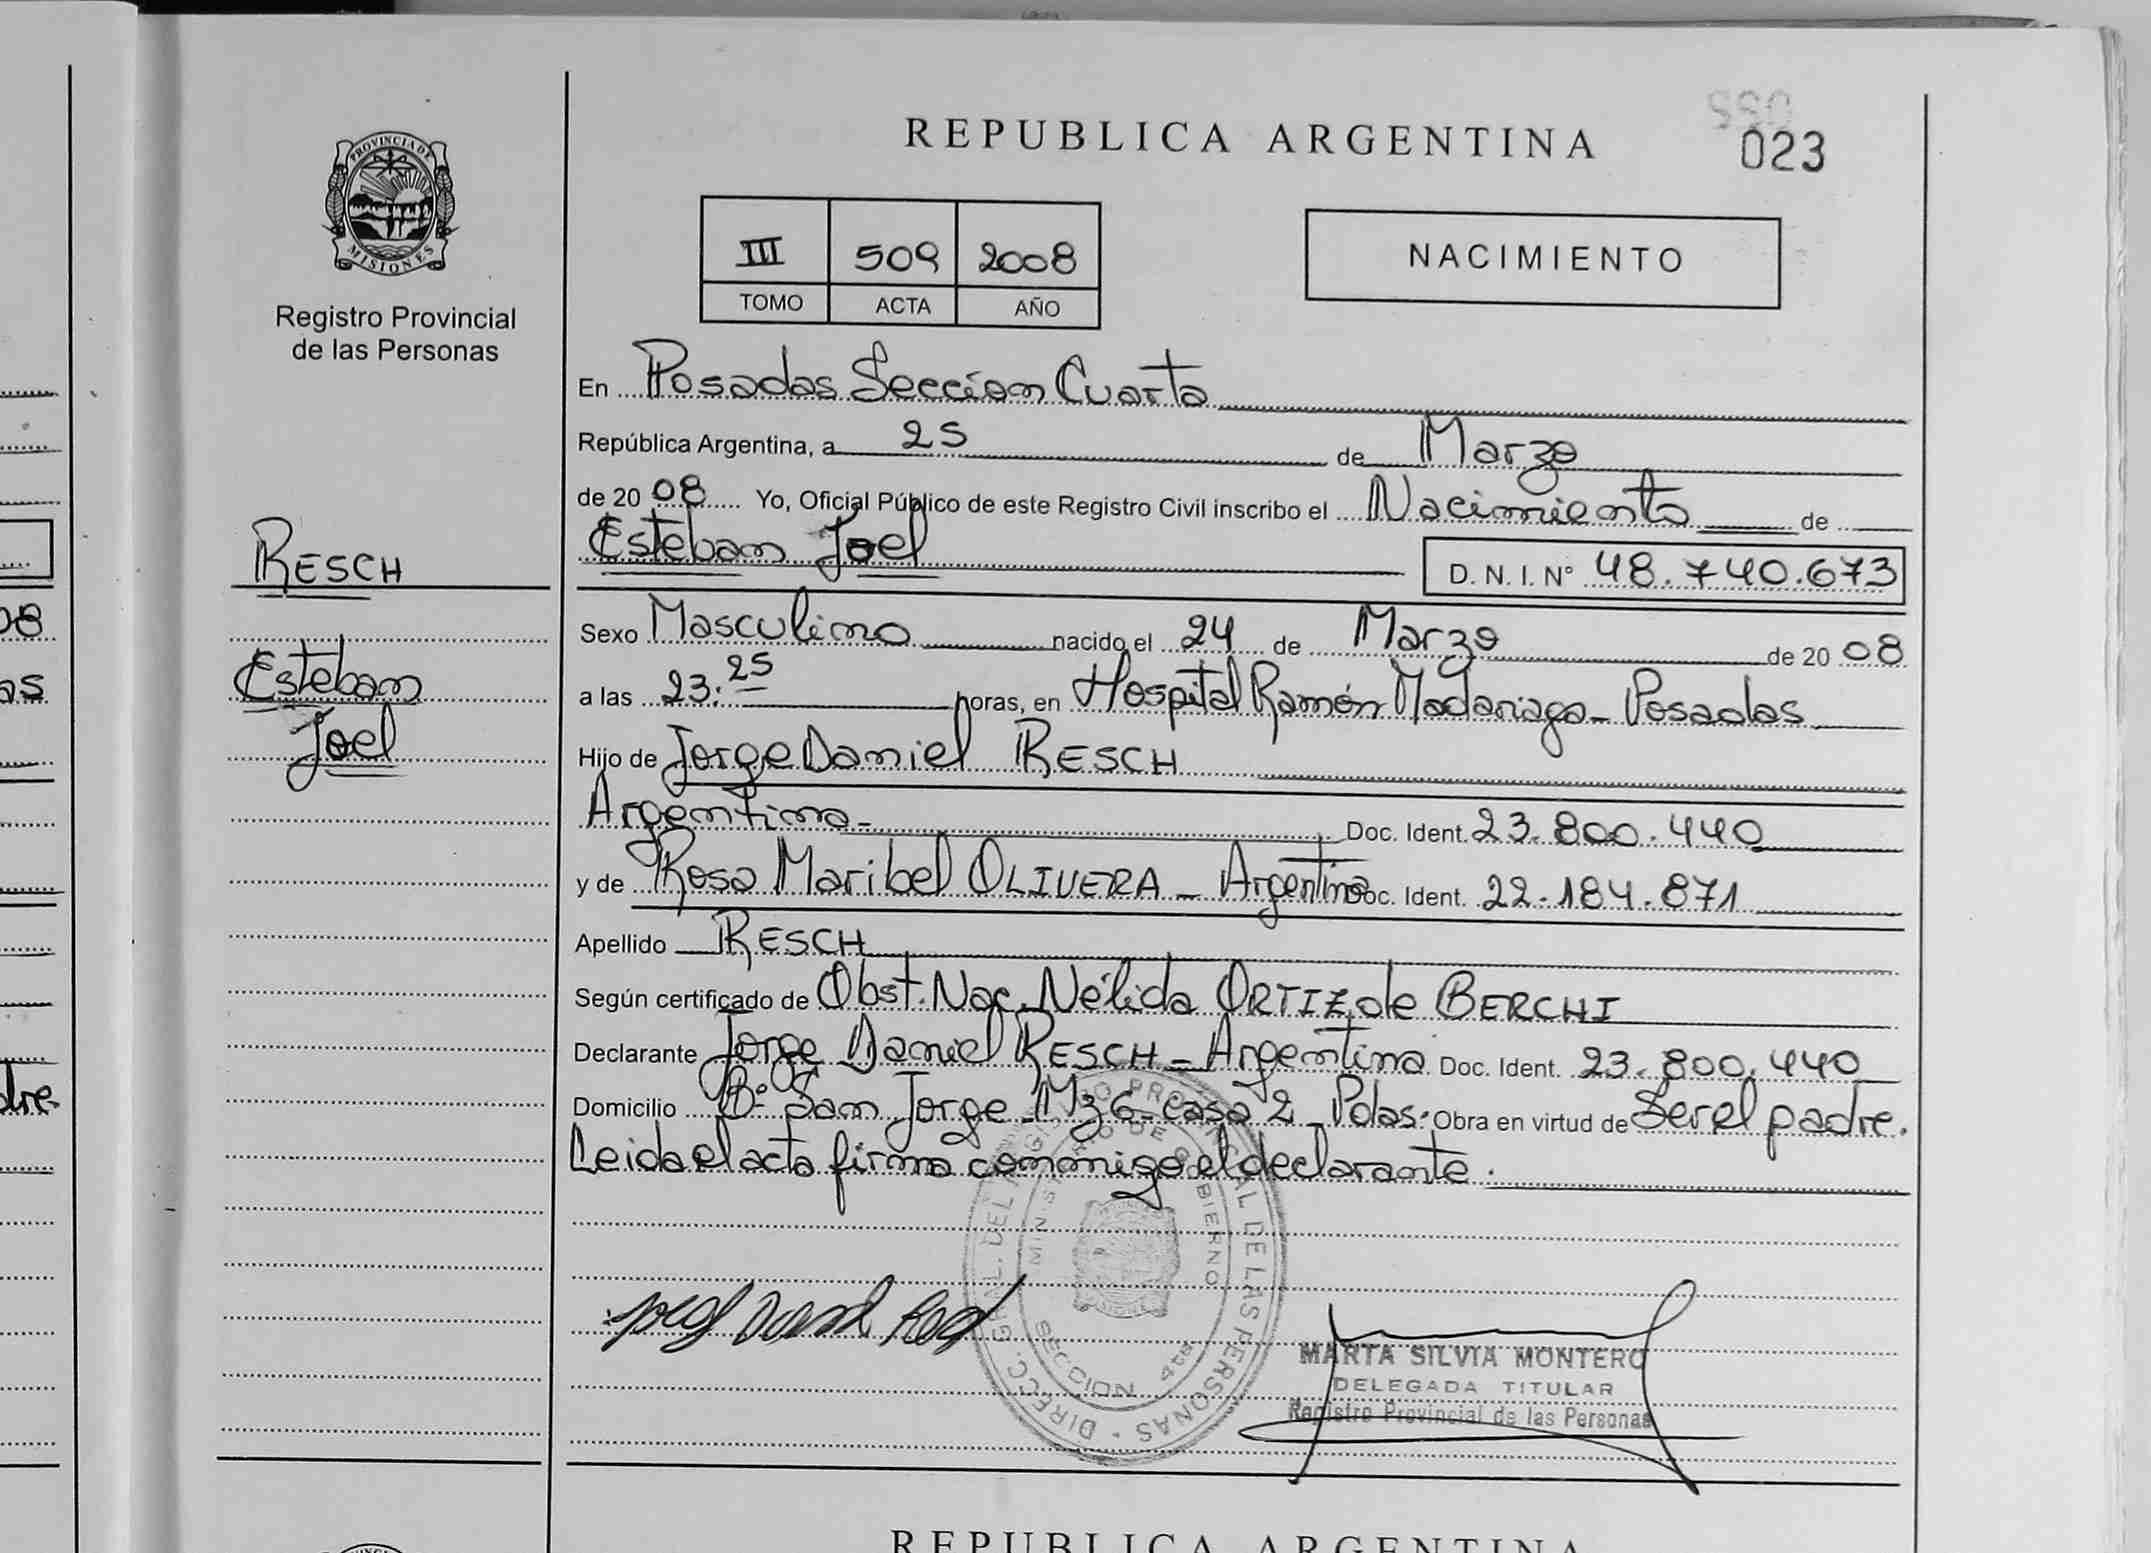 REPUBLICA ARGENTINA
023
PROVINCIA DE
MISIONES
Registro Provincial
de las Personas
III 509 2008
TOMO ACTA AÑO
NACIMIENTO
En Posadas Sección Cuarta
República Argentina, a 25 de Marzo
de 20 08 Yo, Oficial Público de este Registro Civil inscribo el Nacimiento de
Esteban Joel
D. N. I. N° 48.740.673
RESCH
Esteban
Joel
Sexo Masculino nacido el 24 de Marzo de 20 08
a las 23:25 horas, en Hospital Ramón Madariaga - Posadas
Hijo de Jorge Daniel RESCH
Argentina - Doc. Ident. 23.800.440
y de Rosa Maribel OLIVERA - Argentina Doc. Ident. 22.184.871
Apellido RESCH
Según certificado de Obst. Nac. Nélida ORTIZ de BERCHI
Declarante Jorge Daniel RESCH - Argentina Doc. Ident. 23.800.440
Domicilio B° San Jorge Mz 6 - casa 2 - Pdas. Obra en virtud de Ser el padre.
Leida el acta firma conmigo el declarante.
DIRECC. GRAL. DEL REGISTRO PROVINCIAL DE LAS PERSONAS
MINISTERIO DE GOBIERNO
SECCION 4ta
MARTA SILVIA MONTERO
DELEGADA TITULAR
Registro Provincial de las Personas
REPUBLICA ARGENTINA